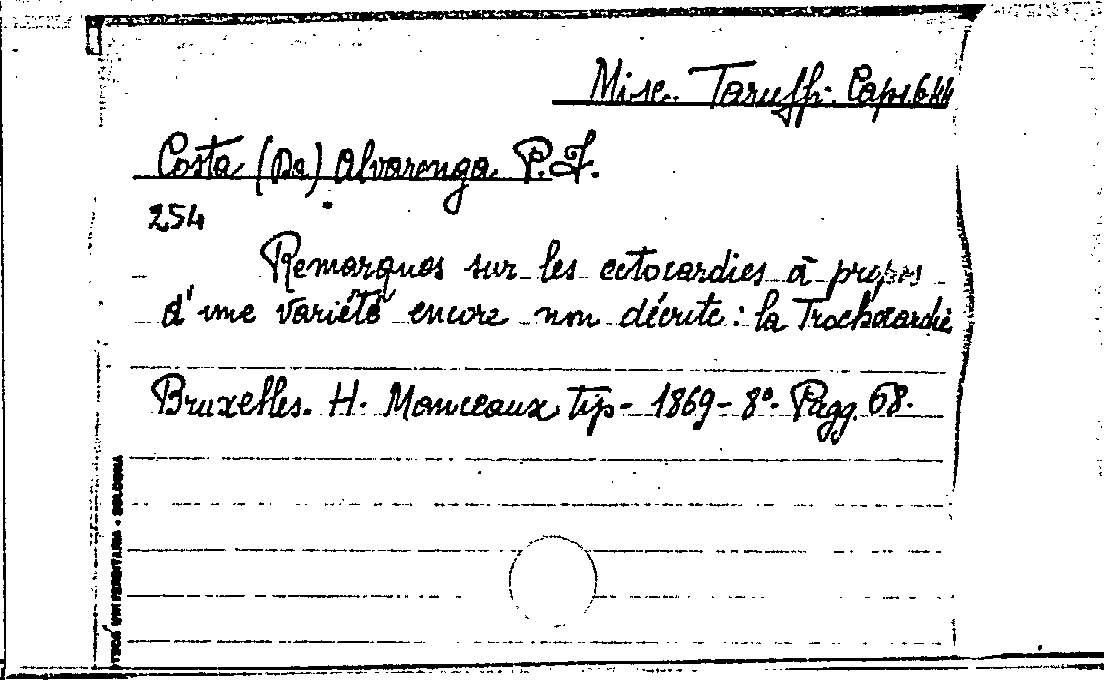 Misc. Taruffi. Caps. 644
Costa (Da) Alvarenga. P.F.
254
Remarques sur les ectocardies à propos
d'une variété encore non décrite: la Trochocardie
Bruxelles. H. Manceaux tip - 1869 - 8°. Pagg. 68.
BOLOGNA